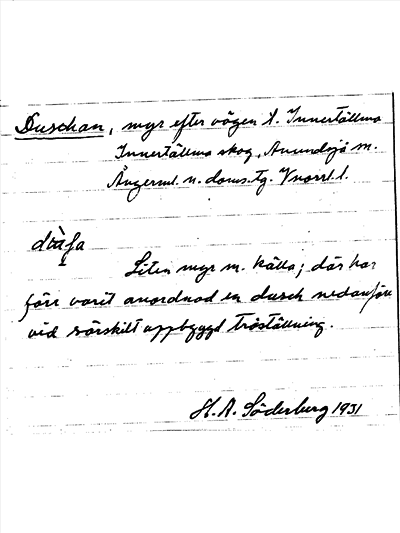 Duschan, myr efter vägen t. Innertällmo
Innertällmo skog, Anundsjö sn.
Ångerml. n. doms.tg. Vnorrl. l.
Liten myr m. källa; där har
förr varit anordnad en dusch nedanför
vid särskilt uppbyggd träställning.
H. A. Söderberg 1931